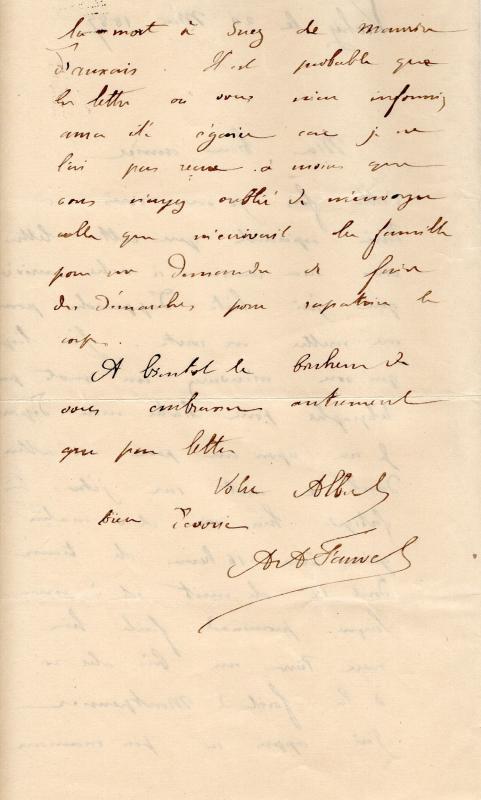 la mort à Suez de Maurice
d'auxais. Il est probable que
la lettre où vous m'en informiez
aura été égarée car je ne
l'ai pas reçue à moins que
vous n'ayez oublié de m'envoyer
celle que m'écrivait la famille
pour me demander de faire
des démarches pour rapatrier le
corps.
A bientôt le bonheur de
vous embrasser autrement
que par lettre
Votre Albert
bien
A A Fauvel